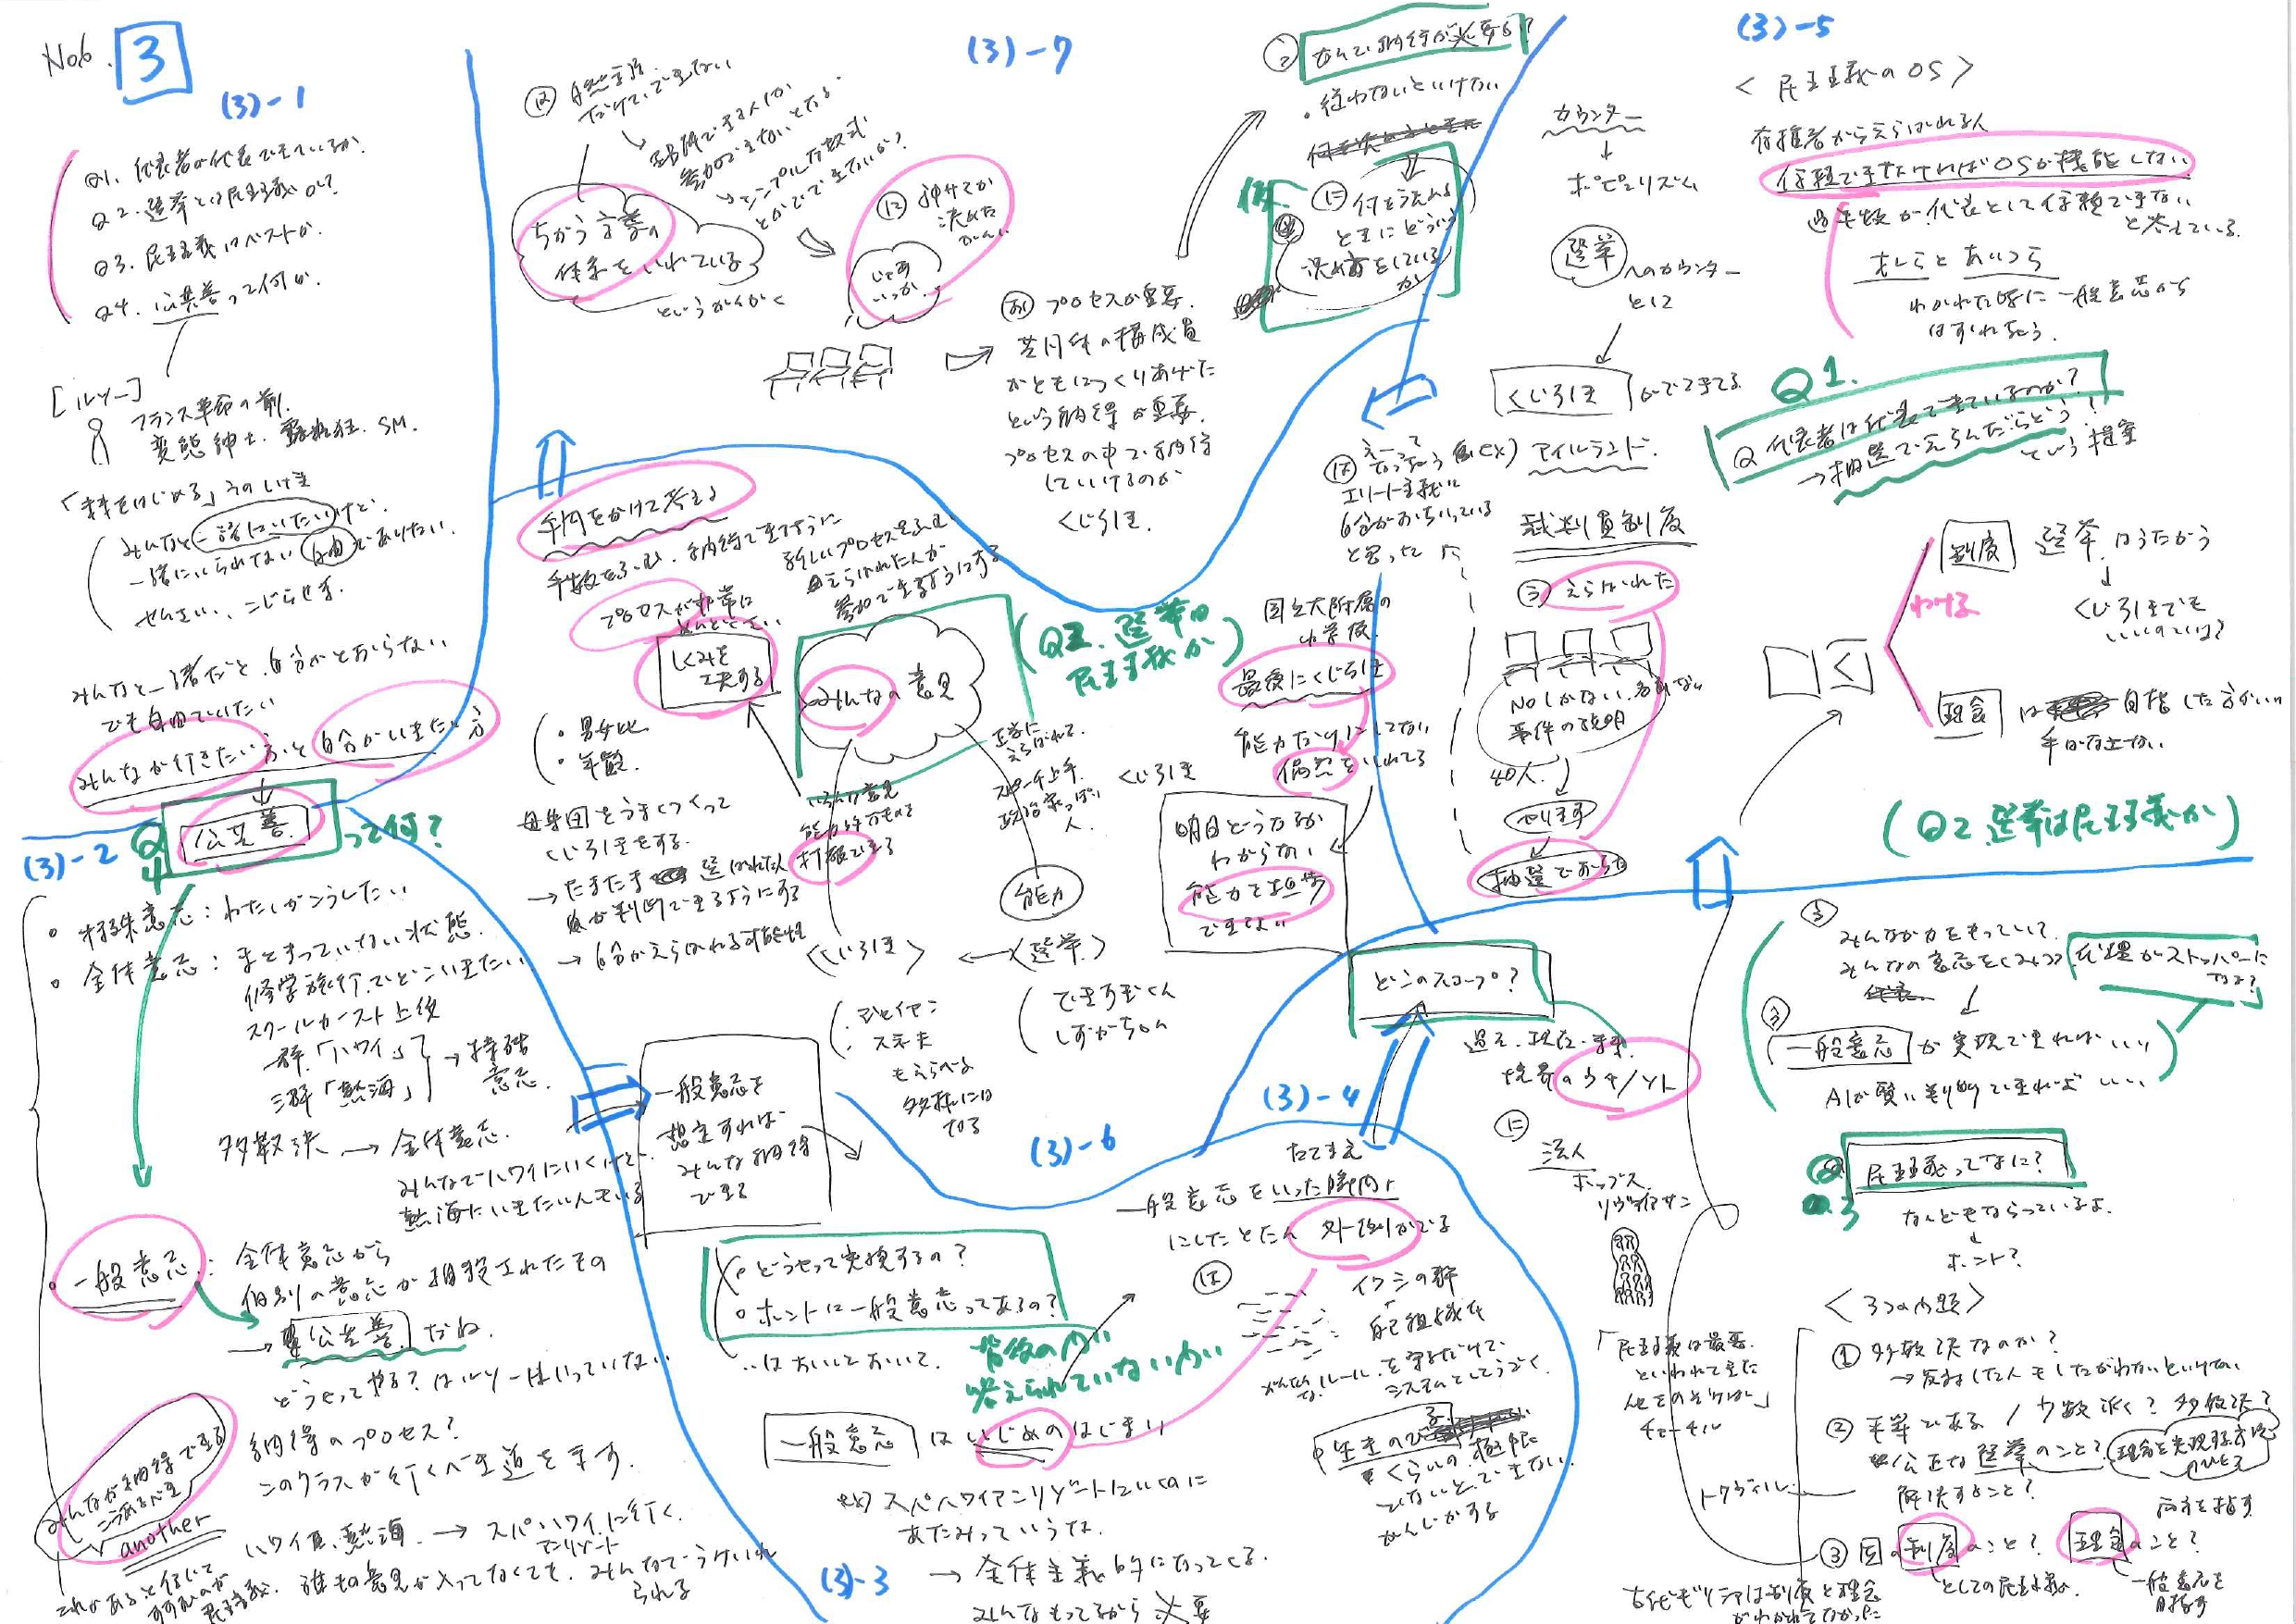 No6. 3
(3)-1
Q1. 代表者が代表できているか.
Q2. 選挙とは民主主義なの?
Q3. 民主主義はベストか.
Q4. 公共善って何か.
[ルソー]
フランス革命の前.
変態紳士. 露出狂. SM.
みんなと一緒にいたいけど.
一緒にいられない 自由でありたい.
せんさい、こじらせ.
みんなと一緒だと自分がとおらない
でも自由でいたい
みんなが行きたい方と自分がいきたい方
公共善
Q4 って何?
(3)-2
・特殊意志:わたしがこうしたい
・全体意志:まとまっていない状態.
修学旅行でどこいきたい
スクールカースト上位
一群「ハワイ」
三群「熱海」
→特殊意志.
多数決→全体意志.
みんなでハワイにいくけど.
熱海にいきたい人もいる
・一般意志:全体意志から
個別の意志が相殺されたもの
→公共善だね.
どうやってやる?はルソーはいっていない
納得のプロセス?
このクラスが行くべき道を示す.
みんなが納得できる
こうあるべき
another
ハワイ、熱海→スパハワイアンリゾートに行く.
誰もの意見が入ってなくても、みんなでうけいれられる
これがあると信じて
すすむのが
民主主義.
(3)-3
一般意志を
想定すれば
みんな納得
できる
・どうやって実現するの?
・ホントに一般意志ってあるの?
…はおいておいて.
背後の問い
答えられていない問い
一般意志はいじめのはじまり
スパハワイアンリゾートにいくのに
あたみっていうな.
→全体主義的になってくる.
みんなもってるから必要
(3)-6
たてまえ
一般意志をいった瞬間に
にしたとたん 外側がでる
は
イワシの群
自己組織化
かんたんなルールを守るだけで、
システムとしてうごく
くらいの極限
でないとできない
かんじがする
(3)-4
どこのスコープ?
過去、現在、未来.
境界のウチ/ソト
に
法人
ホッブス
リヴァイアサン
「民主主義は最悪.
といわれてきた
他をのぞけば」
チャーチル
みんなが力をもっていて.
みんなの意志をくみつつ
代理がストッパーになる?
一般意志が実現できればいい
AIが賢い判断できればよい
Q3 民主主義ってなに?
なんどもならっているよ.
ホント?
<3つの問題>
①多数決なのか?
→反対した人もしたがわないといけない
②平等である / 少数派は? 多数決?
公正な選挙のこと?
理念を実現する方法のひとつ
解決すること?
トクヴィル
両方を指す
③国の制度のこと? 理念のこと?
としての民主主義.
一般意志を目指す
古代ギリシアは制度と理念
がわかれてなかった
(3)-5
<民主主義のOS>
有権者からえらばれる人
信頼できなければOSが機能しない
半数が代表として信頼できない
と答えている.
おれらとあいつら
わかれた時に一般意志から
はずれちゃう.
Q1.
Q 代表者は代表できているのか?
→抽選でえらんだらどう?
という提案
わける
制度 選挙はうたがう
くじ引きでも
いいのでは?
理念 は目指した方がいい
(Q2 選挙は民主主義か)
カウンター
ポピュリズム
選挙へのカウンター
として
くじ引きがでてきてる
ex) アイルランド.
裁判員制度
えらばれた
NOしかない
事件の説明
40人.
やります
抽選でおちた
は
エリート主義に
自分がおちいっている
と思った
国立大附属の
小学校.
最後にくじ引き
能力だけにしてない
偶然をいれてる
くじ引き
明日どうなるか
わからない
能力を担保
できない
(3)-7
は 自然言語
だけでできない
言語化できる人しか
参加できないとなる.
→シンプルな数式
とかでできないか?
ちがう言葉の
体系をいれている
というかんかく
に 神サマが
決めた
かんじ
じゃあ
いっか.
プロセスが重要.
共同体の構成員
がともにつくりあげた
という納得が重要.
プロセスの中で納得
していけるのか
くじ引き.
なんで納得が必要なの?
・従わないといけない
に 何を考える
ときにどういう
決め方をしている
か
手間をかけて考える
手数をふむ、納得できるように
新しいプロセスをふむ
えらばれた人が
参加できるようにする
プロセスが非常に
めんどくさい
しくみを
工夫する
みんなの意見
(Q2. 選挙は
民主主義か)
・男女比
・年齢.
母集団をうまくつくって
くじ引きをする.
→たまたま選ばれた人
が判断できるようにする
→自分がえらばれる可能性
いろんな意見
打破できる
正当に
えらばれて.
スピーチ上手.
政治家っぽい
人.
能力
<くじ引き>←<選挙>
ジャイアン
スネ夫
もえらべる
多様には
なる
できすぎくん
しずかちゃん